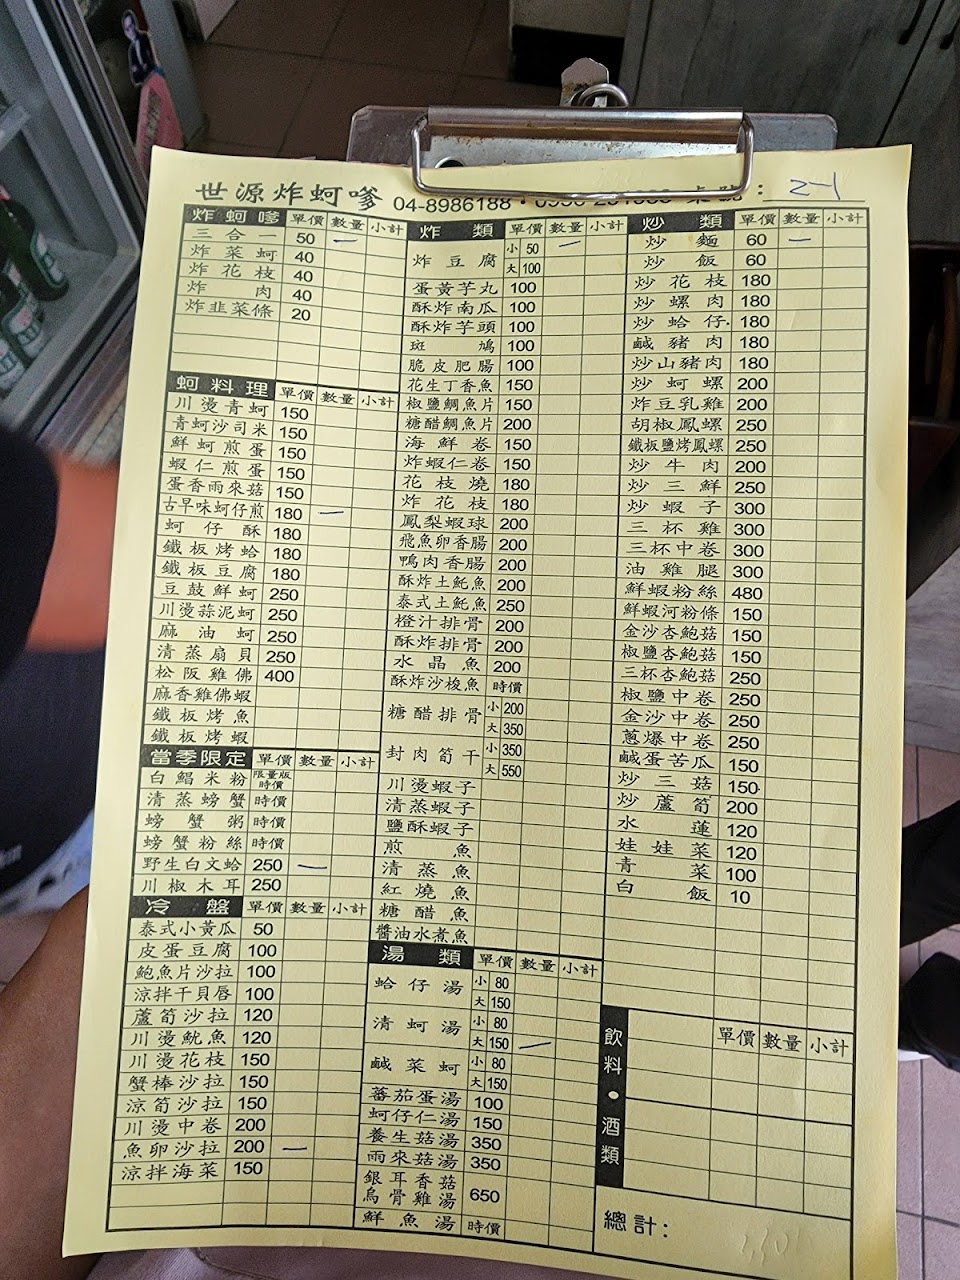 世源炸蚵嗲 04-8986188
: 2-1
炸蚵嗲 單價 數量 小計
三合一 50 一
炸菜蚵 40
炸花枝 40
炸肉 40
炸韭菜條 20
蚵料理 單價 數量 小計
川燙青蚵 150
青蚵沙司米 150
鮮蚵煎蛋 150
蝦仁煎蛋 150
蛋香雨來菇 150
古早味蚵仔煎 180 一
蚵仔酥 180
鐵板烤蛤 180
鐵板豆腐 180
豆鼓鮮蚵 250
川燙蒜泥蚵 250
麻油蚵 250
清蒸扇貝 250
松阪雞佛 400
麻香雞佛蝦
鐵板烤魚
鐵板烤蝦
當季限定 單價 數量 小計
白鯧米粉 限量版時價
清蒸螃蟹 時價
螃蟹粥 時價
螃蟹粉絲 時價
野生白文蛤 250 一
川椒木耳 250
冷盤 單價 數量 小計
泰式小黃瓜 50
皮蛋豆腐 100
鮑魚片沙拉 100
涼拌干貝唇 100
蘆筍沙拉 120
川燙魷魚 120
川燙花枝 150
蟹棒沙拉 150
涼筍沙拉 150
川燙中卷 200
魚卵沙拉 200 一
涼拌海菜 150
炸類 單價 數量 小計
炸豆腐 小 50 一
大 100
蛋黃芋丸 100
酥炸南瓜 100
酥炸芋頭 100
斑鳩 100
脆皮肥腸 100
花生丁香魚 150
椒鹽鯛魚片 150
糖醋鯛魚片 200
海鮮卷 150
炸蝦仁卷 150
花枝燒 180
炸花枝 180
鳳梨蝦球 200
飛魚卵香腸 200
鴨肉香腸 200
酥炸土魠魚 200
泰式土魠魚 250
橙汁排骨 200
酥炸排骨 200
水晶魚 200
酥炸沙梭魚 時價
糖醋排骨 小 200
大 350
封肉筍干 小 350
大 550
川燙蝦子
清蒸蝦子
鹽酥蝦子
煎魚
清蒸魚
紅燒魚
糖醋魚
醬油水煮魚
湯類 單價 數量 小計
蛤仔湯 小 80
大 150
清蚵湯 小 80
大 150 一
鹹菜蚵 小 80
大 150
蕃茄蛋湯 100
蚵仔仁湯 150
養生菇湯 350
雨來菇湯 350
銀耳香菇
烏骨雞湯 650
鮮魚湯 時價
炒類 單價 數量 小計
炒麵 60 一
炒飯 60
炒花枝 180
炒螺肉 180
炒蛤仔 180
鹹豬肉 180
炒山豬肉 180
炒蚵螺 200
炸豆乳雞 200
胡椒鳳螺 250
鐵板鹽烤鳳螺 250
炒牛肉 200
炒三鮮 250
炒蝦子 300
三杯雞 300
三杯中卷 300
油雞腿 300
鮮蝦粉絲 480
鮮蝦河粉條 150
金沙杏鮑菇 150
椒鹽杏鮑菇 150
三杯杏鮑菇 250
椒鹽中卷 250
金沙中卷 250
蔥爆中卷 250
鹹蛋苦瓜 150
炒三菇 150
炒蘆筍 200
水蓮 120
娃娃菜 120
青菜 100
白飯 10
飲料・酒類 單價 數量 小計
總計: